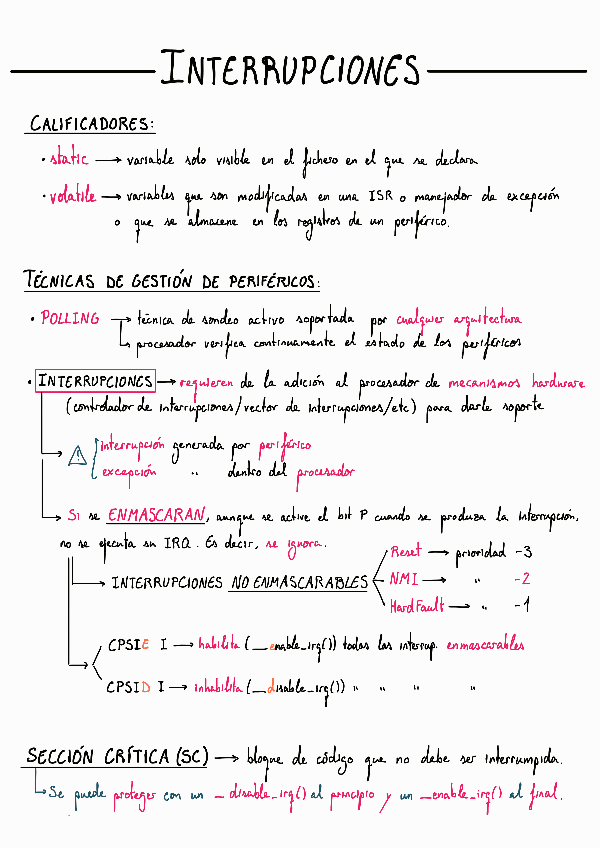 INTERRUPCIONES
CALIFICADORES:
· static → variable solo visible en el fichero en el que se declara
· volatile → variables que son modificadas en una ISR o manejador de excepción
o que se almacene en los registros de un periférico.
TÉCNICAS DE GESTIÓN DE PERIFÉRICOS:
· POLLING → técnica de sondeo activo soportada por cualquier arquitectura
↳ procesador verifica continuamente el estado de los periféricos
· INTERRUPCIONES → requieren de la adición al procesador de mecanismos hardware
(controlador de interrupciones/vector de interrupciones/etc) para darle soporte
⚠ interrupción generada por periférico
excepción " dentro del procesador
Si se ENMASCARAN, aunque se active el bit P cuando se produzca la interrupción,
no se ejecuta su IRQ. Es decir, se ignora.
Reset → prioridad -3
→ INTERRUPCIONES NO ENMASCARABLES NMI → " -2
HardFault → " -1
CPSIE I → habilita (__enable_irq()) todas las interrup. enmascarables
CPSID I → inhabilita (__disable_irq()) " " " "
SECCIÓN CRÍTICA (SC) → bloque de código que no debe ser interrumpida.
↳ Se puede proteger con un _disable_irq() al principio y un _enable_irq() al final.